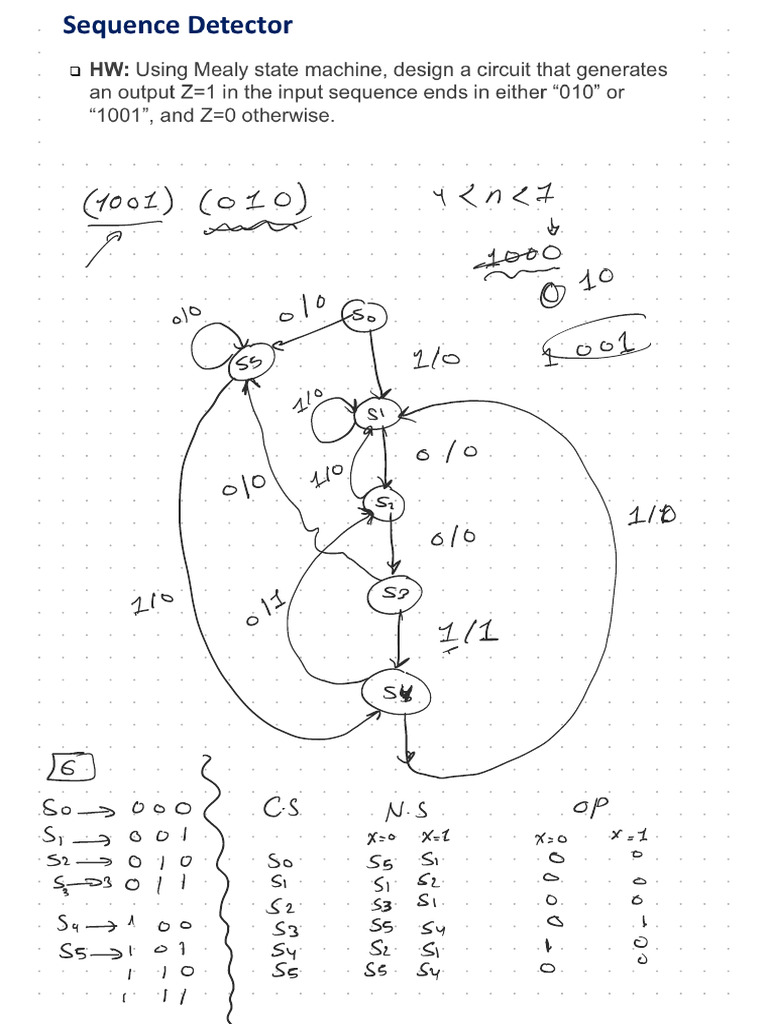 Sequence Detector
HW: Using Mealy state machine, design a circuit that generates
an output Z=1 in the input sequence ends in either “010” or
“1001”, and Z=0 otherwise.
(1001) (010) 4 < n < 7
1000
0 10
1 001
0/0 0/0 S0
S5 1/0
1/0 S1
0/0
0/0 1/0 S2
1/0
0/0
S3
1/0 0/1
1/1
S4
6
S0 → 000 C.S N.S OP
S1 → 001 x=0 x=1 x=0 x=1
S2 → 010 S0 S5 S1 0 0
S3 → 3 011 S1 S1 S2 0 0
S2 S3 S1 0 0
S4 → 100 S3 S5 S4 0 1
S5 → 101 S4 S2 S1 1 0
110 S5 S5 S4 0 0
111